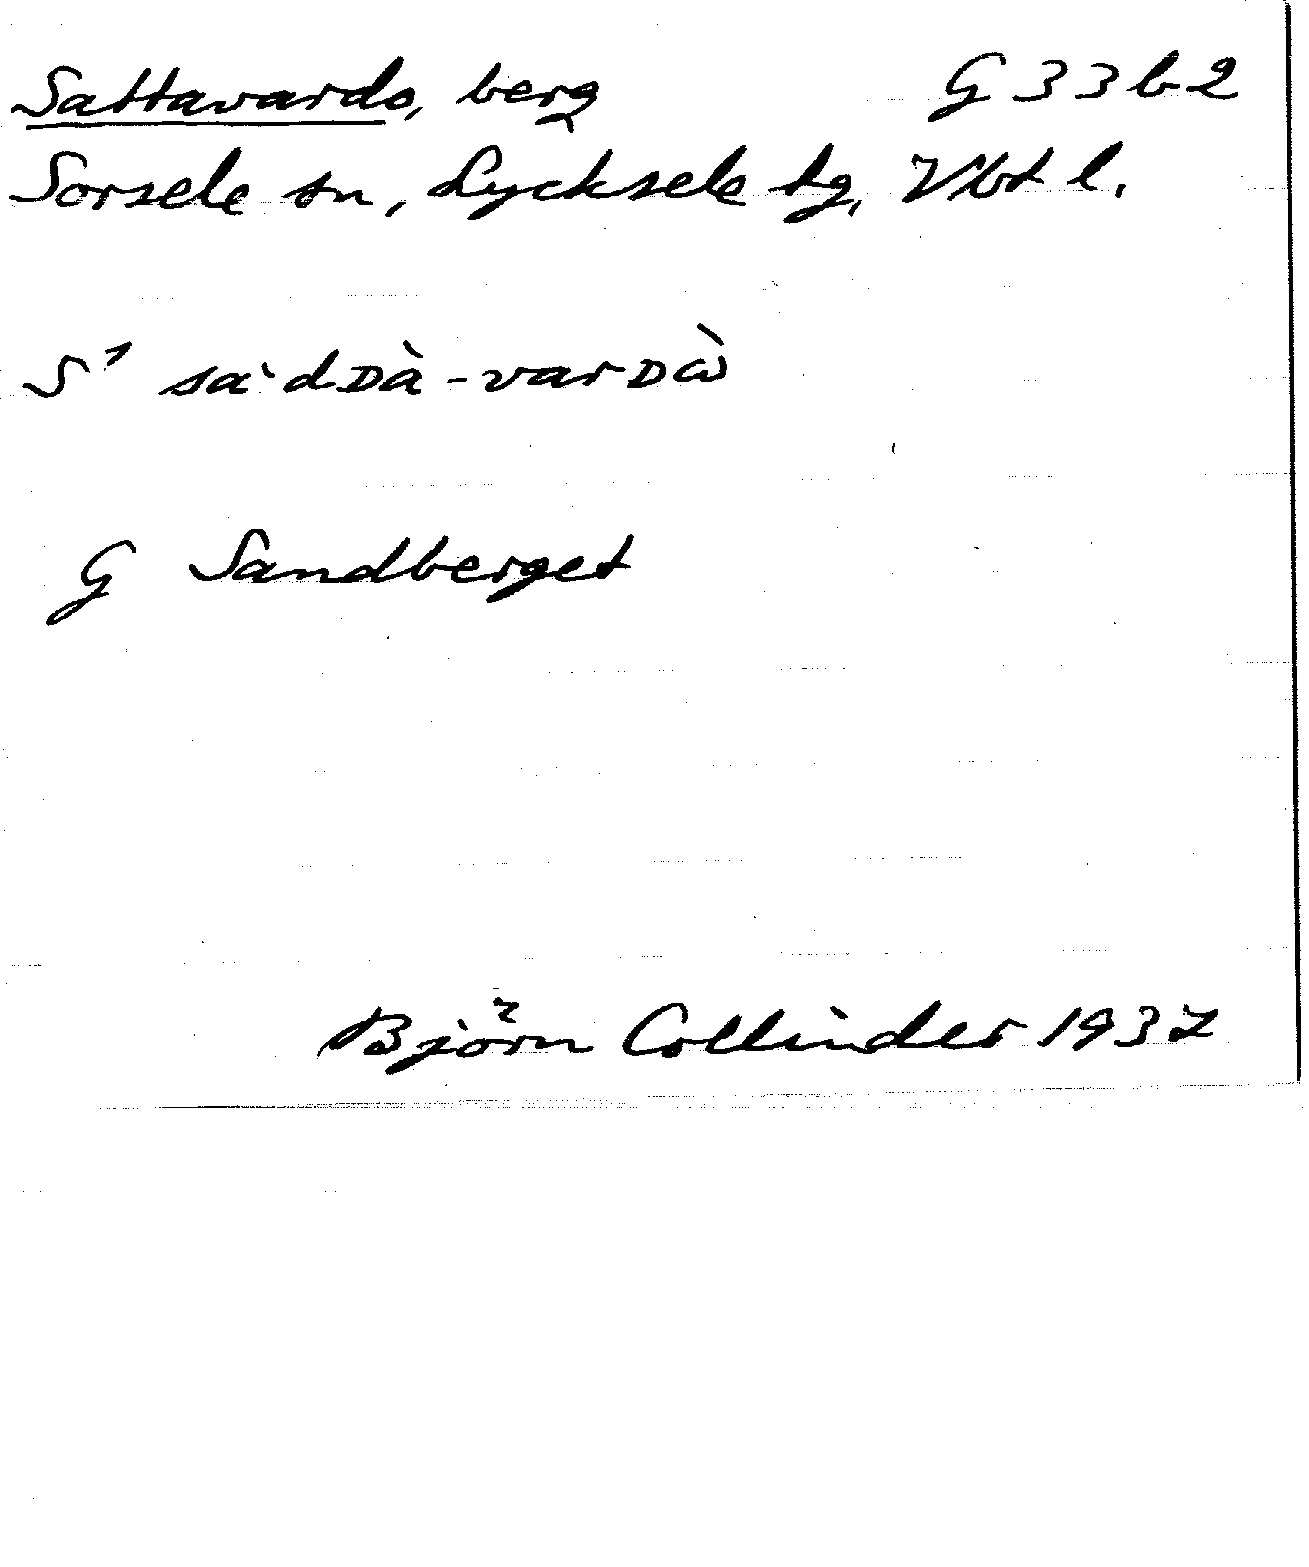 Sattavardo, berg G 33 b 2
Sorsele sn, Lycksele tg, Vbt l.
S¹ sà̀dᴅà-varᴅὼ
G Sandberget
Björn Collinder 1937